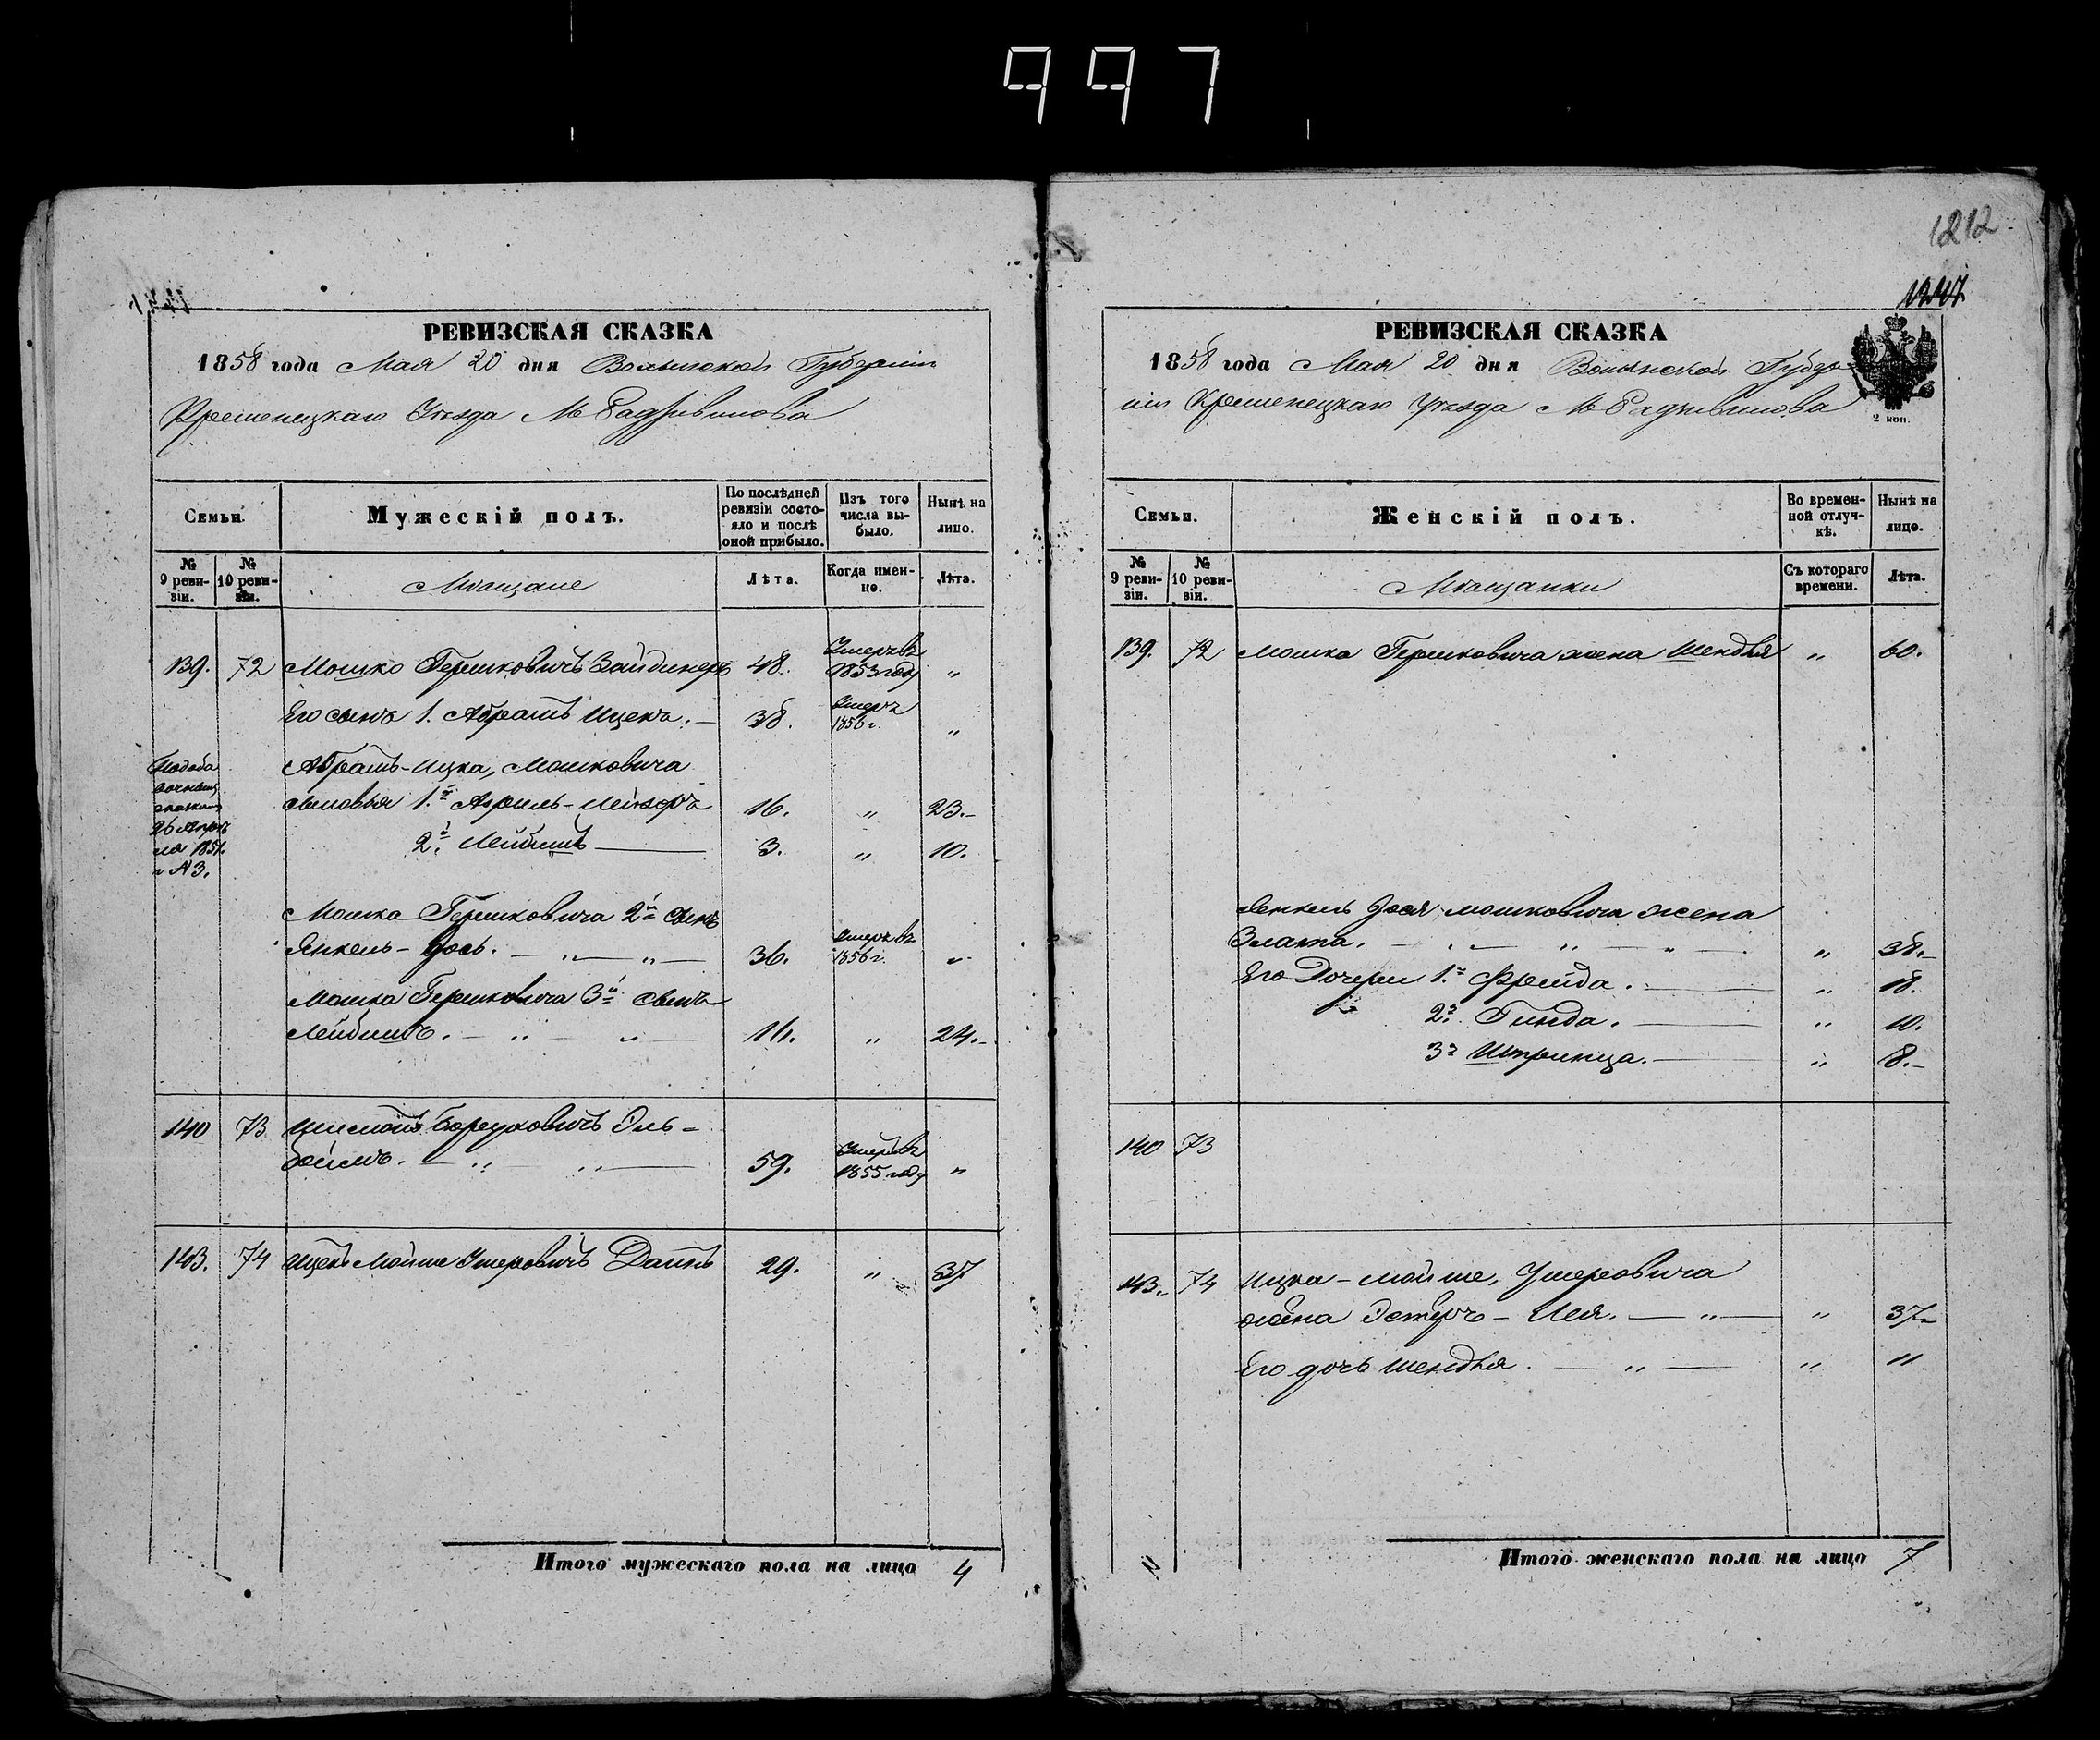 997
1212
РЕВИЗСКАЯ СКАЗКА
1858 года Мая 20 дня Волынской Губерніи
Кременецкаго Уѣзда М Радзивилова
Семьи.
Мужескій полъ.
По послѣдней ревизіи состояло и послѣ оной прибыло.
Изъ того числа выбыло.
Нынѣ на лицо.
№ 9 ревизіи.
№ 10 ревизіи.
Мѣщане
Лѣта.
Когда именно.
Лѣта.
139. 72 Мошко Гершковичъ Зайдинеръ 48. Умеръ въ 1853 году "
Его сынъ 1. Абрамъ Ицекъ. — 38. Умеръ 1856 г. "
Абрамъ-Ицка, Мошковича
сыновья 1.й Лейзоръ 16. " 23.-
2.й Лейбишъ — 3. " 10.
26 Апрѣля 185
№ 3.
Мошка Гершковича 2й сынъ
Янкель-Іось. — " — " — 36. Умеръ въ 1856 г. "
Мошка Гершковича 3й сынъ
Лейбишъ. — " — " — 16. " 24.-
140 73 Боруховичъ Эль-
боймъ. — " " — 59. Умеръ въ 1855 году "
143. 74 Ицекъ Мойше Умеровичъ 29. " 37
Итого мужескаго пола на лицо 4
РЕВИЗСКАЯ СКАЗКА
1858 года Мая 20 дня Волынской Губер-
ніи Кременецкаго Уѣзда М Радзивилова
2 коп.
Семьи.
Женскій полъ.
Во временной отлучкѣ.
Нынѣ на лицо.
№ 9 ревизіи.
№ 10 ревизіи.
Мѣщанки
Съ котораго времени.
Лѣта.
139. 72 Мошка Гершковича жена Шендля " 60.
Янкель Іося Мошковича жена
Злата. — " — " — " 38.-
Его Дочери 1.я Фрейда. — " 18.
2.я Гинда. — " 10.
3я Шпринца. — " 8.-
140 73
143. 74 Ицка-Мойше, Умеровича
жена Эстеръ- — " — " 37
Его дочь Шендля. — " — " 11
Итого женскаго пола на лицо 7